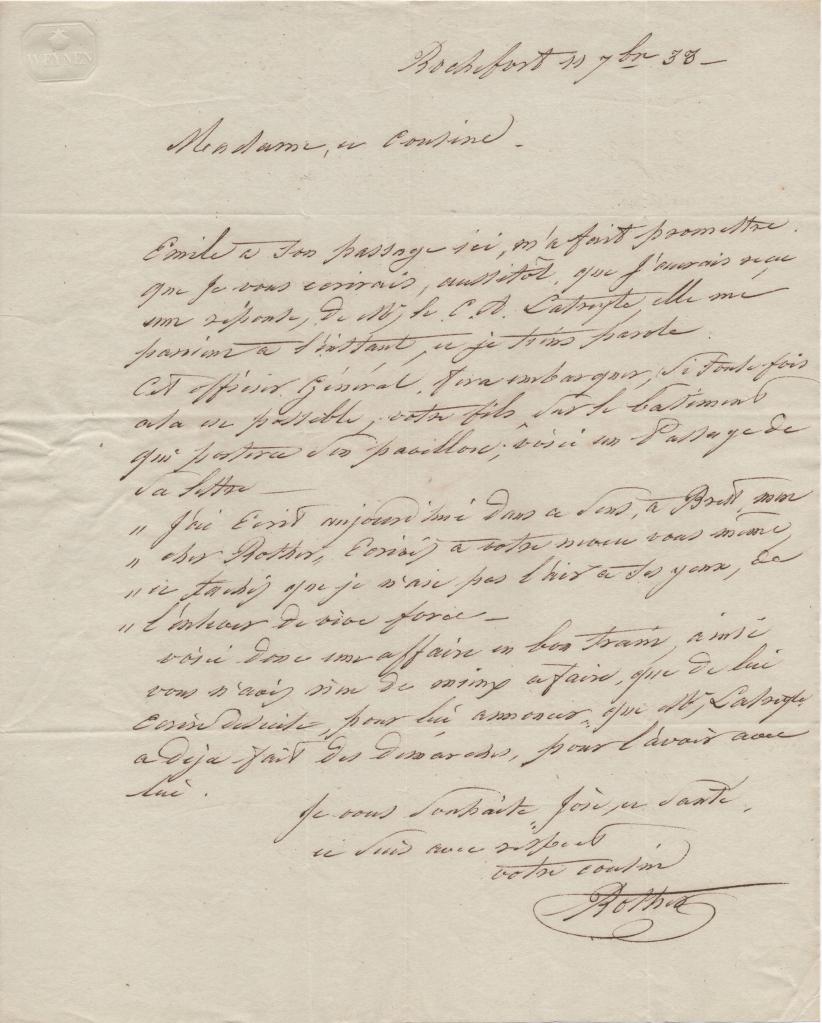 WEYNEN
Rochefort 11 7bre 38 –
Madame, et Cousine.
Emile a son passage ici, m'a fait promettre
que Je vous écrirais, aussitôt, que J'aurais reçu
une réponse, de Mr, le C. A. Latreyte, elle me
parvient a l'instant, et je tiens parole
Cet officier Général, fera embarquer, si toute fois
cela est possible, votre fils sur le batiment
qui portera son pavillon, voici un Passage de
sa lettre —
„ J'ai Ecrit aujourd'hui dans ce sens, a Brest, mon
„ cher Rother, Ecrivez a votre neveu vous même,
„ et tachez que je n'aie pas l'air a ses yeux, de
„ l'enlever de vive force —
voici donc une affaire en bon train, ainsi
vous n'avez rien de mieux a faire, que de lui
Ecrire de suite, pour lui annoncer, que Mr, Latreyte
a déja fait des démarches, pour l'avoir avec
lui.
Je vous souhaite, Joie, et santé,
et suis avec respect
votre cousin
Rother